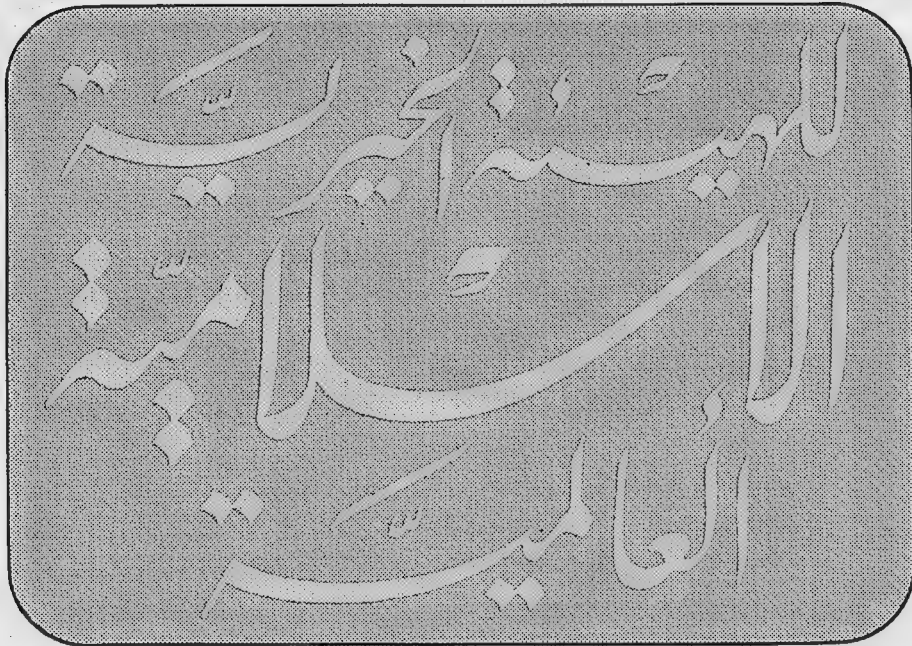 للهيئة الخيريّة
الإسلاميّة
العالميّة